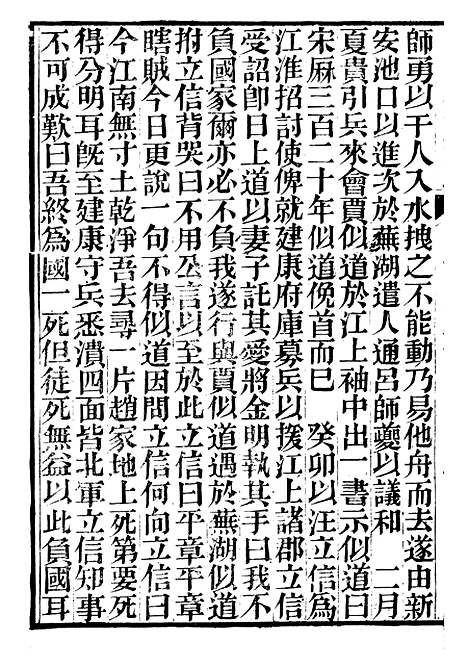 師勇以千人入水拽之不能動乃易他舟而去遂由新
安池口以進次於蕪湖遣人通呂師夔以議和　二月
夏貴引兵來會賈似道於江上袖中出一書示似道曰
宋厤三百二十年似道俛首而巳　癸卯以汪立信爲
江淮招討使俾就建康府庫募兵以援江上諸郡立信
受詔卽日上道以妻子託其愛將金明執其手曰我不
負國家爾亦必不負我遂行與賈似道遇於蕪湖似道
拊立信背哭曰不用公言以至於此立信曰平章平章
瞎賊今日更說一句不得似道因問立信何向立信曰
今江南無寸土乾淨吾去尋一片趙家地上死第要死
得分明耳旣至建康守兵悉潰四面皆北軍立信知事
不可成歎曰吾終爲國一死但徒死無益以此負國耳